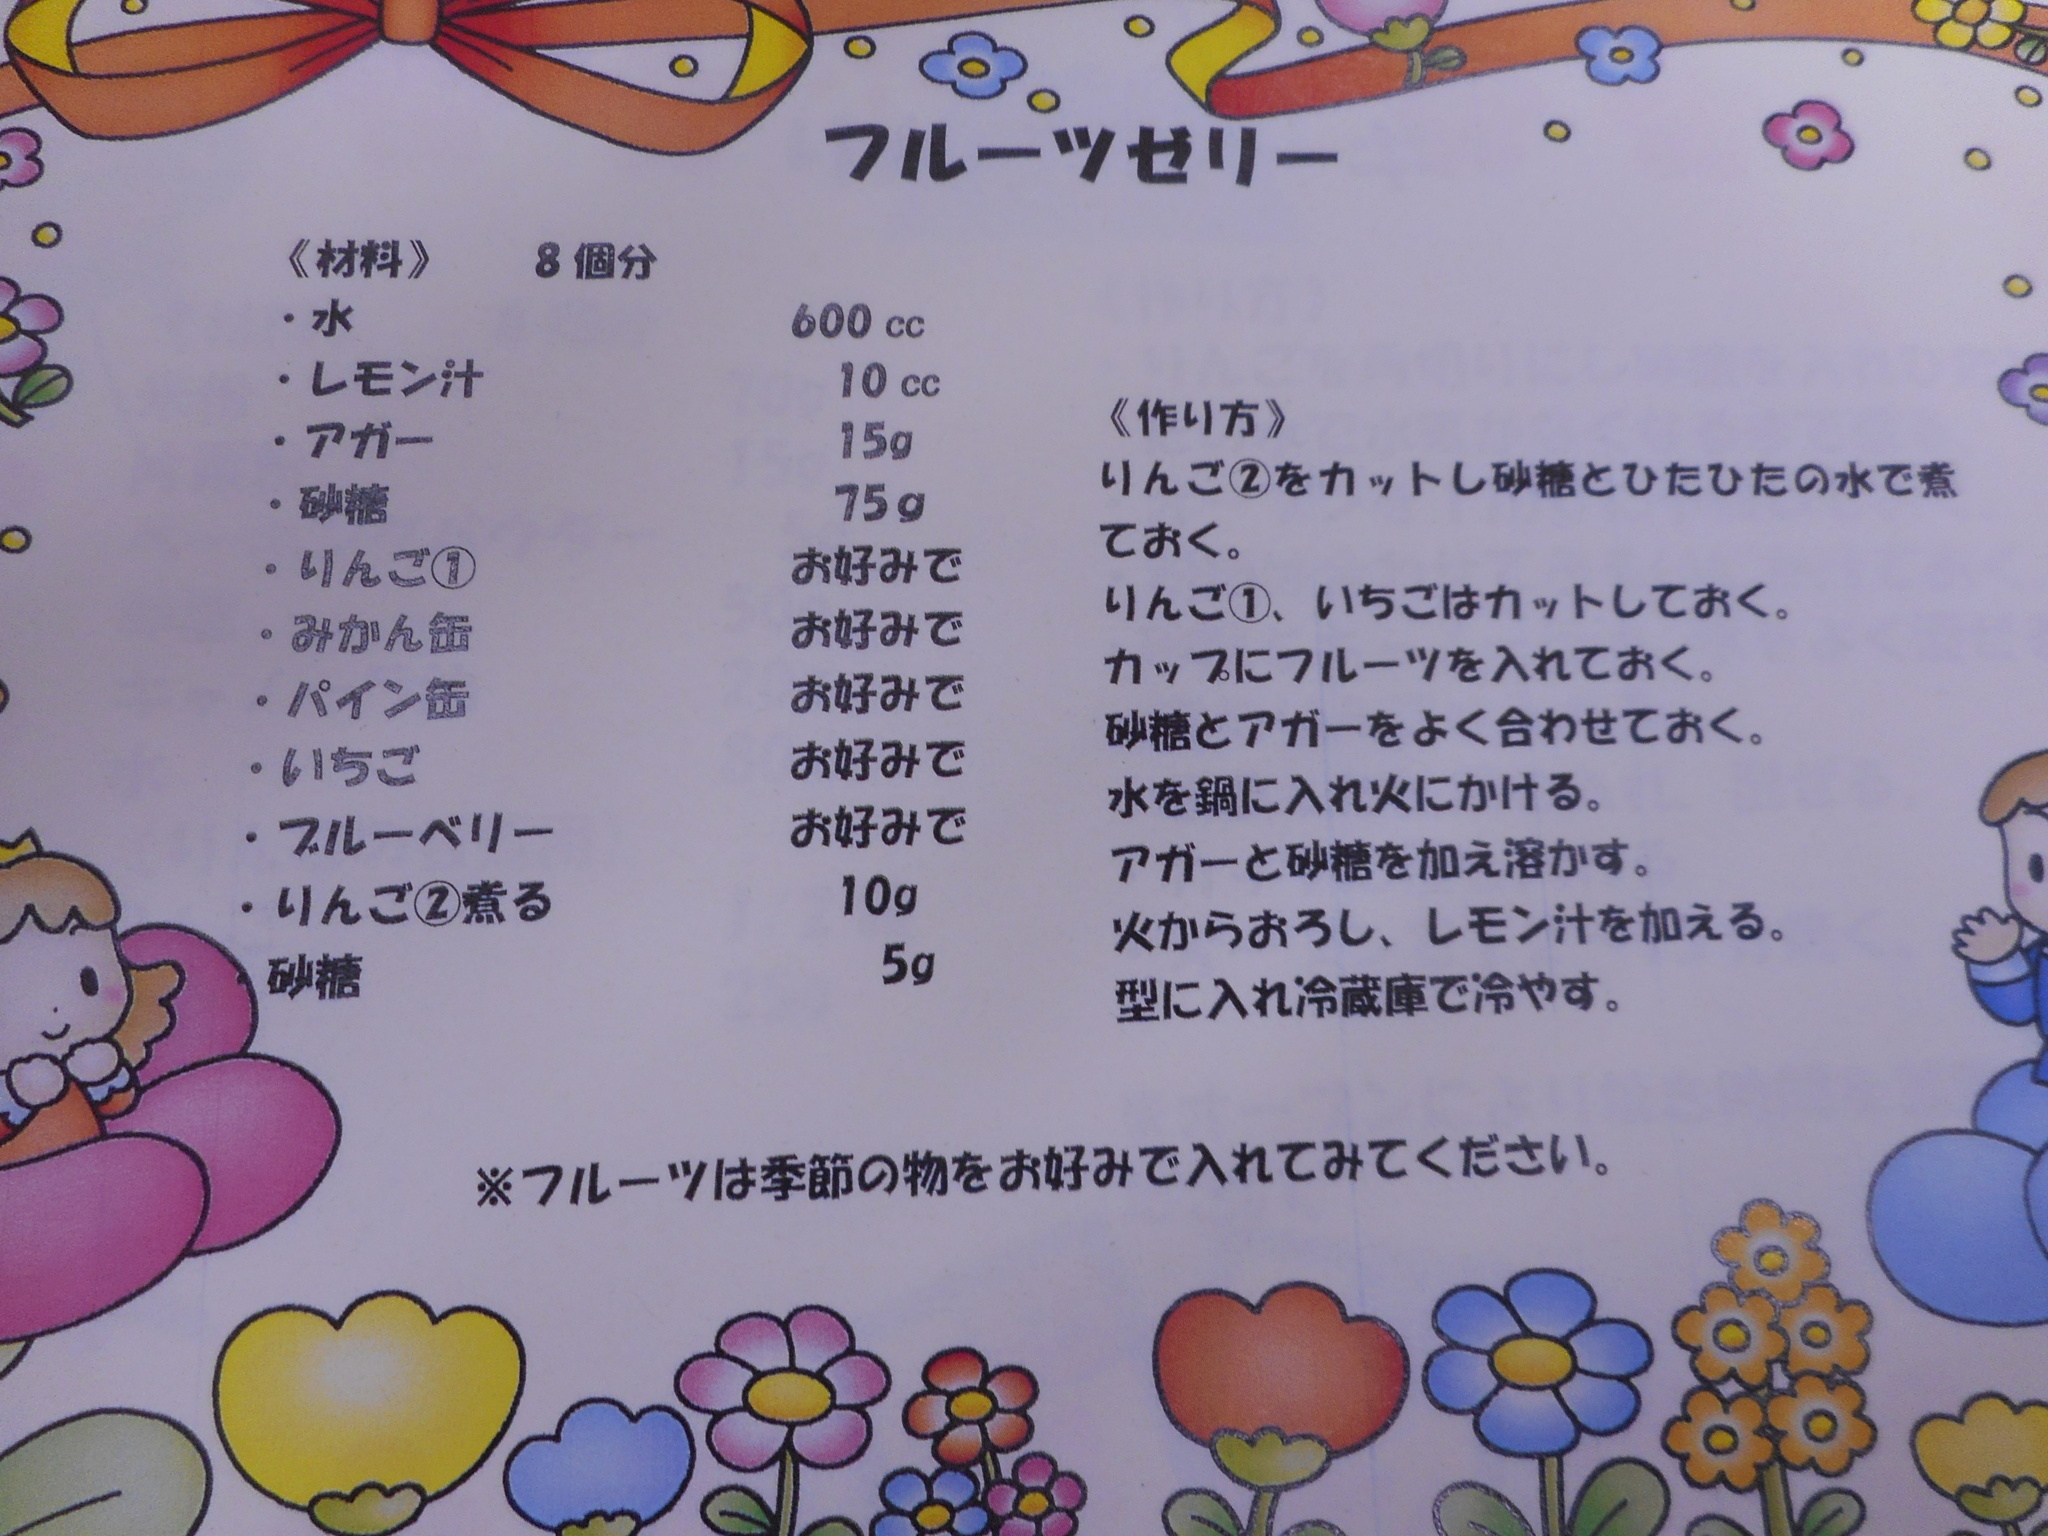 フルーツゼリー
《材料》 8個分
・水 600cc
・レモン汁 10cc
・アガー 15g
・砂糖 75g
・りんご① お好みで
・みかん缶 お好みで
・パイン缶 お好みで
・いちご お好みで
・ブルーベリー お好みで
・りんご②煮る 10g
砂糖 5g
《作り方》
りんご②をカットし砂糖とひたひたの水で煮
ておく。
りんご①、いちごはカットしておく。
カップにフルーツを入れておく。
砂糖とアガーをよく合わせておく。
水を鍋に入れ火にかける。
アガーと砂糖を加え溶かす。
火からおろし、レモン汁を加える。
型に入れ冷蔵庫で冷やす。
※フルーツは季節の物をお好みで入れてみてください。